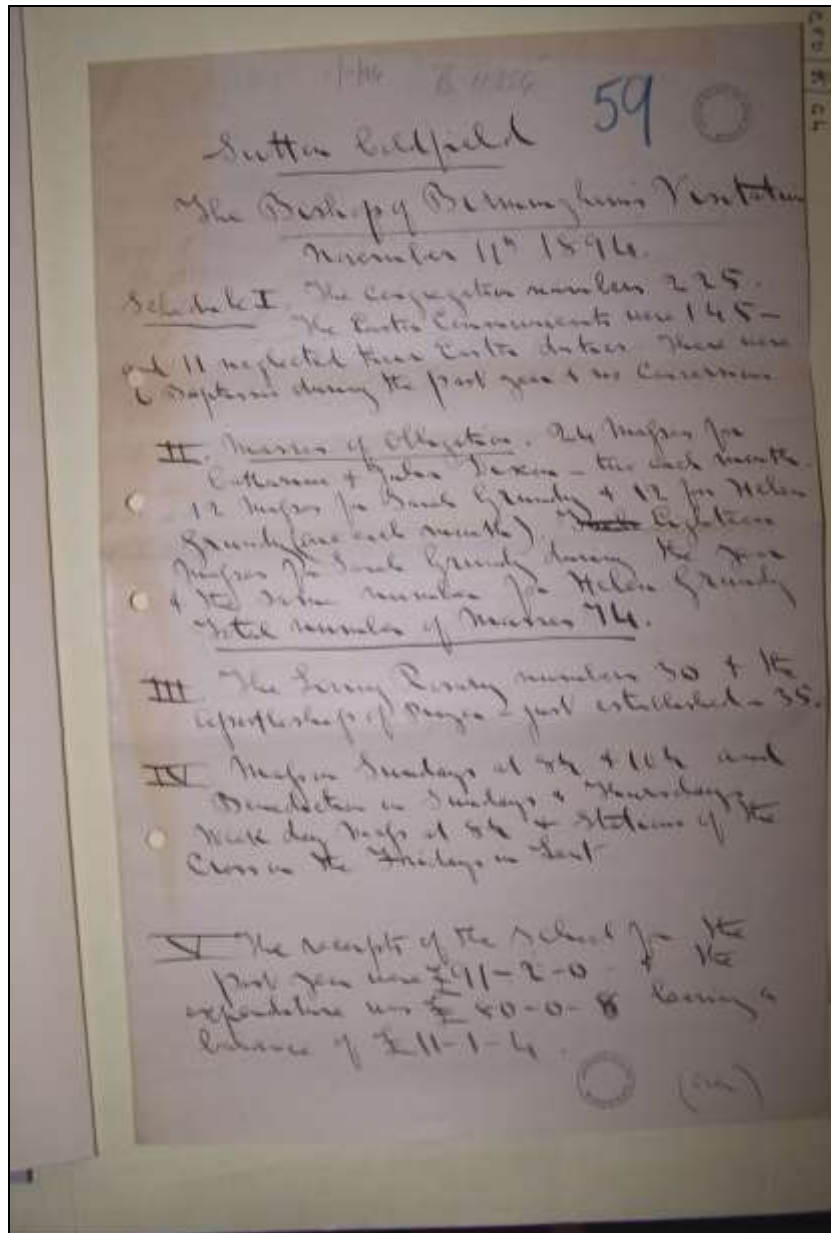 B 11856
59
Sutton Coldfield
The Bishop of Birmingham's Visitation
November 11th 1894.
Schedule I. The congregation numbers 225.
The Easter Communicants were 145 -
and 11 neglected their Easter duties. There were
6 Baptisms during the past year & no Conversions
II. Masses of Obligation. 24 Masses for
Catharine & John Dixon - two each month.
12 Masses for Sarah Grundy & 12 for Helen
Grundy (one each month) Eighteen
Masses for Sarah Grundy during the year
& the same number for Helen Grundy
Total number of Masses 74.
III. The Living Rosary numbers 30 & the
Apostleship of Prayer - just established - 35.
IV Mass on Sundays at 8½ & 10½ and
Benediction on Sundays & Thursdays.
Week day Mass at 8½ & Stations of the
Cross on the Fridays in Lent
V The receipts of the School for the
past year were £91-2-0 - & the
expenditure was £80-0-8 leaving a
balance of £11-1-4.
(over)